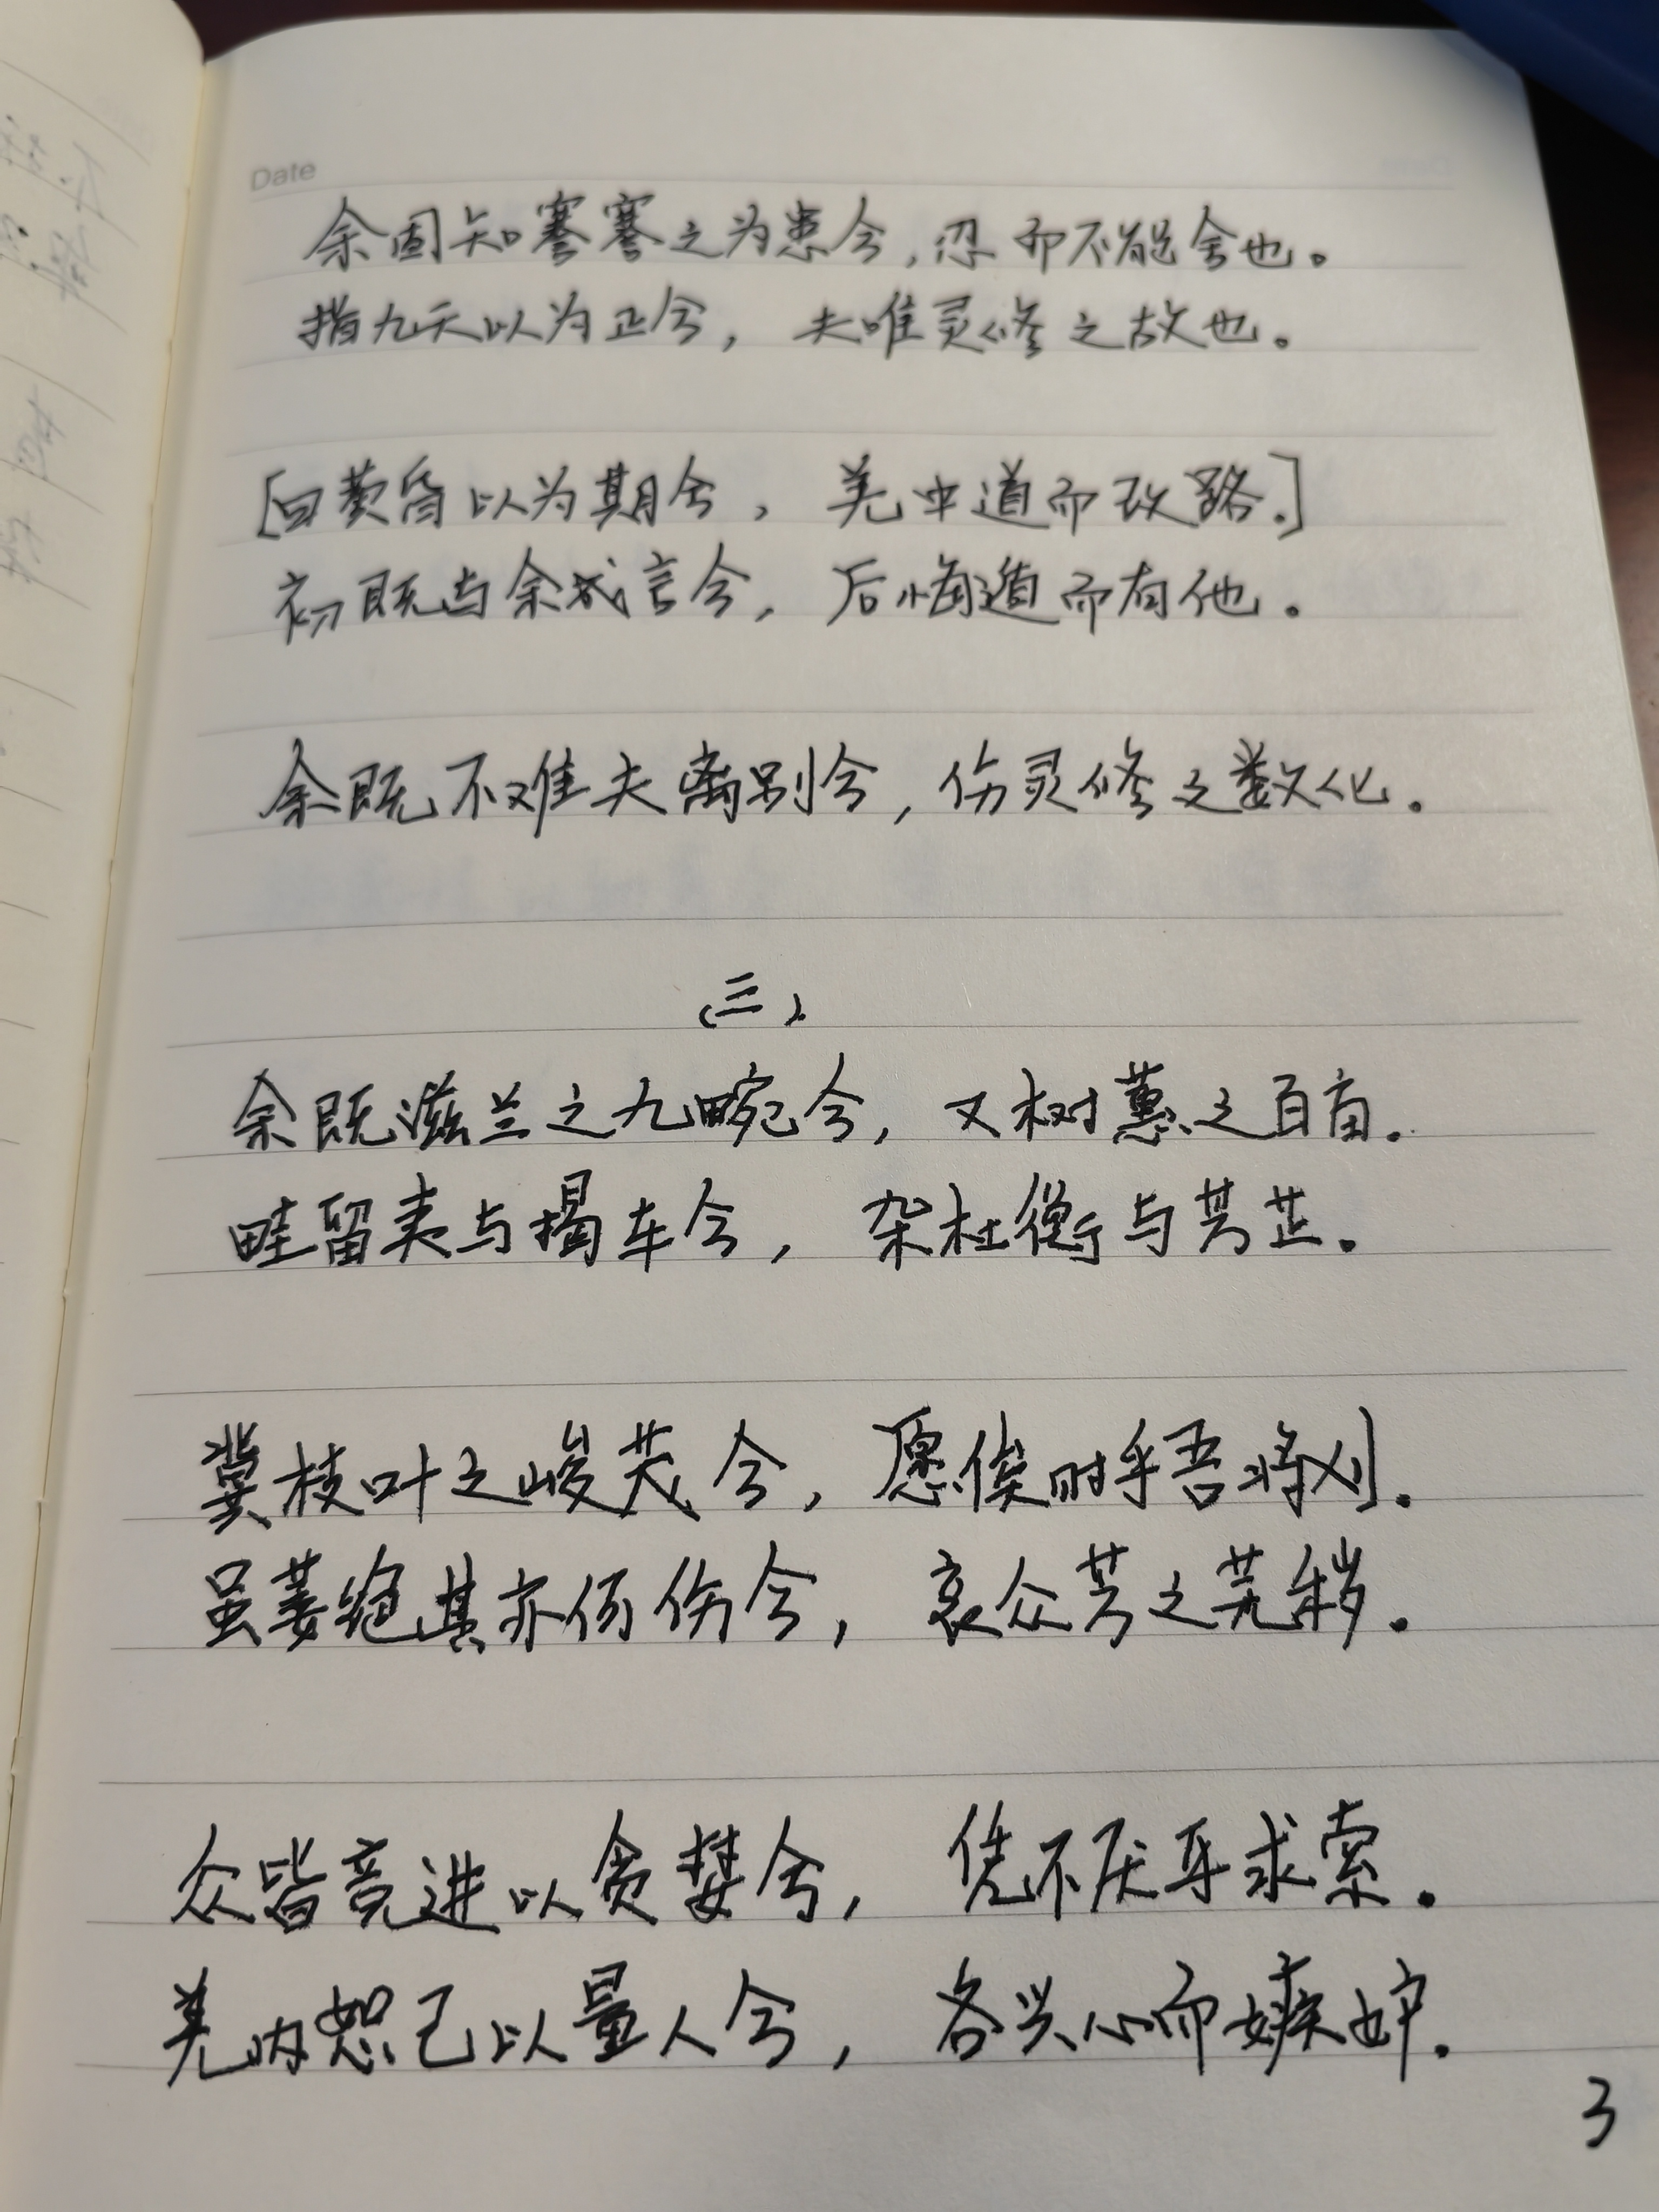 Date
余固知謇謇之为患兮，忍而不能舍也。
指九天以为正兮，夫唯灵修之故也。
[曰黄昏以为期兮，羌中道而改路。]
初既与余成言兮，后悔遁而有他。
余既不难夫离别兮，伤灵修之数化。
（三）
余既滋兰之九畹兮，又树蕙之百亩。
畦留夷与揭车兮，杂杜衡与芳芷。
冀枝叶之峻茂兮，愿俟时乎吾将刈。
虽萎绝其亦何伤兮，哀众芳之芜秽。
众皆竞进以贪婪兮，凭不厌乎求索。
羌内恕己以量人兮，各兴心而嫉妒。
3